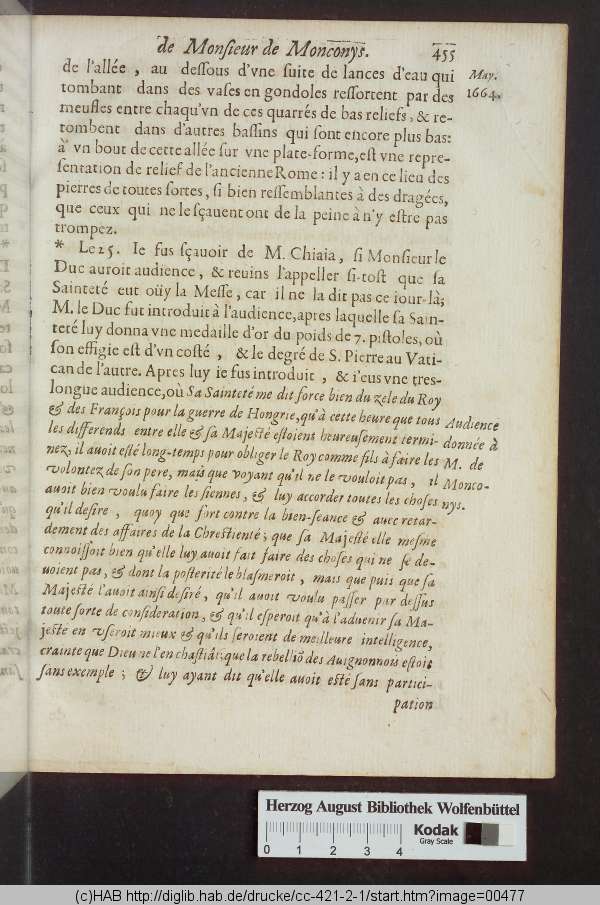 de Monſieur de Monconys. 455
de l'allée, au deſſous d'vne ſuite de lances d'eau qui
tombant dans des vaſes en gondoles reſſortent par des
meufles entre chaqu'vn de ces quarrés de bas reliefs, & re-
tombent dans d'autres baſſins qui ſont encore plus bas:
à vn bout de cette allée ſur vne plate-forme, eſt vne repre-
ſentation de relief de l'ancienne Rome: il y a en ce lieu des
pierres de toutes ſortes, ſi bien reſſemblantes à des dragées,
que ceux qui ne le ſçauent ont de la peine à n'y eſtre pas
trompez.
May.
1664.
* Le 25. Ie fus ſçauoir de M. Chiaia, ſi Monſieur le
Duc auroit audience, & reuins l'appeller ſi-toſt que ſa
Sainteté eut oüy la Meſſe, car il ne la dit pas ce iour-là;
M. le Duc fut introduit à l'audience, apres laquelle ſa Sain-
teté luy donna vne medaille d'or du poids de 7. piſtoles, où
ſon effigie eſt d'vn coſté, & le degré de S. Pierre au Vati-
can de l'autre. Apres luy ie fus introduit, & i'eus vne tres-
longue audience, où Sa Sainteté me dit force bien du zele du Roy
& des François pour la guerre de Hongrie, qu'à cette heure que tous
les differends entre elle & ſa Majeſté eſtoient heureuſement termi-
nez, il auoit eſté long-temps pour obliger le Roy comme fils à faire les
volontez de ſon pere, mais que voyant qu'il ne le vouloit pas, il
auoit bien voulu faire les ſiennes, & luy accorder toutes les choſes
qu'il deſire, quoy que fort contre la bien-ſeance & auec retar-
dement des affaires de la Chreſtienté; que ſa Majeſté elle meſme
connoiſſoit bien qu'elle luy auoit fait faire des choſes qui ne ſe de-
uoient pas, & dont la poſterité le blaſmeroit, mais que puis que ſa
Majeſté l'auoit ainſi deſiré, qu'il auoit voulu paſſer par deſſus
toute ſorte de conſideration, & qu'il eſperoit qu'à l'aduenir ſa Ma-
jeſté en vſeroit mieux & qu'ils ſeroient de meilleure intelligence,
crainte que Dieu ne l'en chaſtiât; que la rebelliõ des Auignonnois eſtoit
ſans exemple; & luy ayant dit qu'elle auoit eſté ſans partici-
pation
Audience
donnée à
M. de
Monco-
nys.
Herzog August Bibliothek Wolfenbüttel
0 1 2 3 4
Kodak
Gray Scale
(c)HAB http://diglib.hab.de/drucke/cc-421-2-1/start.htm?image=00477